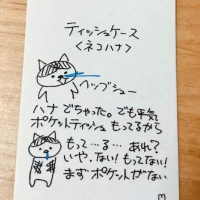 ティッシュケース
〈ネコハナ〉
ヘップシュー
ハナでちゃった。でも平気
ポケットティッシュ もってるから
もって…る… あれ？
いや、ない！もってない！
まずポケットがない